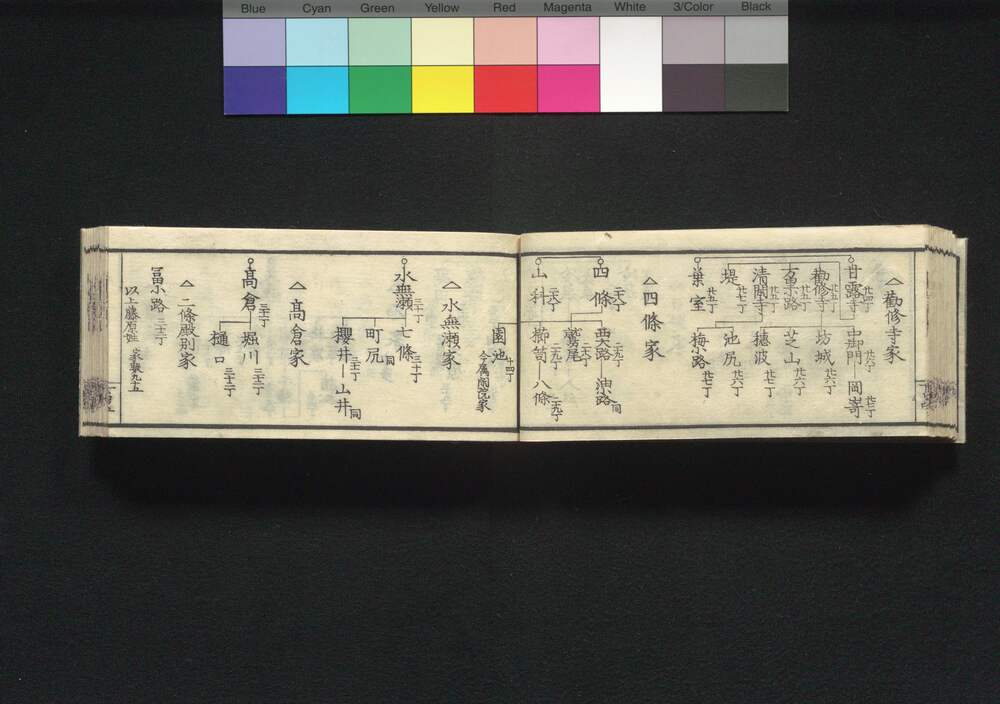 Blue Cyan Green Yellow Red Magenta White 3/Color Black
勸修寺家
甘露寺 廿四丁
中御門 廿六丁
岡嵜 廿七丁
勸修寺 廿五丁
坊城 廿六丁
万里小路 廿五丁
芝山 廿六丁
清閑寺 廿五丁
穗波 廿七丁
堤 廿七丁
池尻 廿六丁
葉室 廿五丁
梅小路 廿七丁
四條家
四條 二八丁
西大路 二九丁
油小路 同
鷲尾 二八丁
山科 二八丁
櫛笥 二九丁
八條 二九丁
園池 廿四丁
今属閑院家
水無瀬家
水無瀬 三十丁
七條 三十丁
町尻 同
櫻井 三十一丁
山井 同
髙倉家
髙倉 三十二丁
堀川 三十三丁
樋口 三十三丁
二條殿別家
冨小路 三十三丁
以上藤原姓 家数九十五